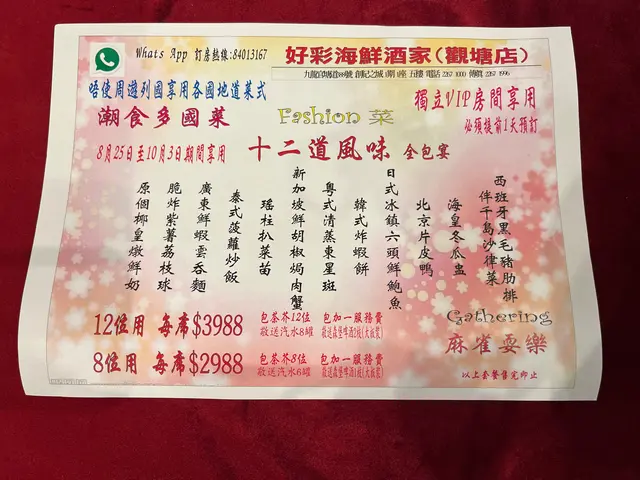 Whats App 訂房熱線:84013167
好彩海鮮酒家(觀塘店)
唔使周遊列國享用各國地道菜式
潮食多國菜
Fashion 菜
獨立VIP房間享用
必須提前1天預訂
8月25日至10月3日期間享用
十二道風味 全包宴
西班牙黑毛豬肋排
伴千島沙律菜
海皇冬瓜盅
北京片皮鴨
日式冰鎮六頭鮮鮑魚
韓式炸蝦餅
粵式清蒸東星斑
新加坡鮮胡椒焗肉蟹
瑤柱扒菜苗
泰式菠蘿炒飯
廣東鮮蝦雲吞麵
脆炸紫薯荔枝球
原個椰皇燉鮮奶
12位用 每席$3988
包茶芥12位
敬送汽水8罐
包加一服務費
8位用 每席$2988
包茶芥8位
敬送汽水6罐
包加一服務費
Gathering
麻雀耍樂
以上套餐售完即止